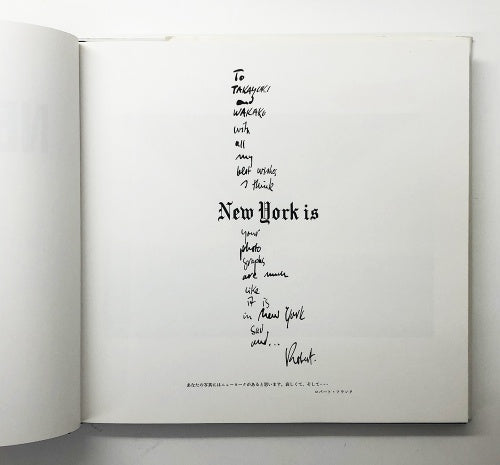 To
TAKAYUKI
and
WAKAKO
with
all
my
best wishes
I think
New York is
your
photo
graphs
are much
like
it is
in New York
sad
and...
Robert.
あなたの写真にはニューヨークがあると思います。哀しくて、そして・・・
ロバート・フランク